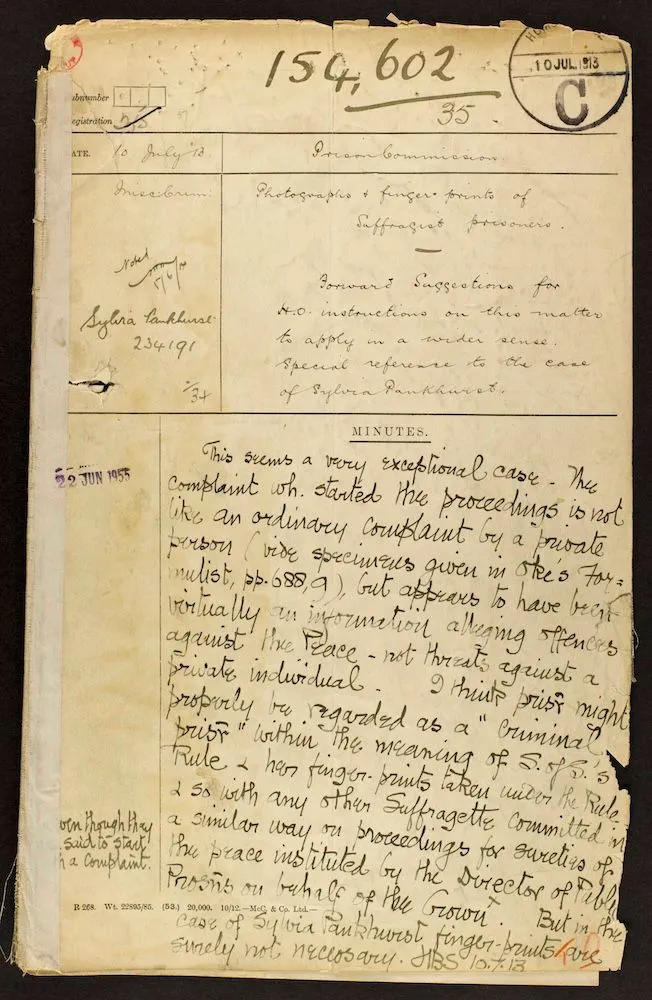 154,602
35.
10 JUL. 1913
C
ubnumber
egistration
ATE.
10 July 13.
Prison Commission.
Miss Crim:
Photographs & finger prints of
Suffragist prisoners.
Noted
Forward Suggestions for
H.O. instructions on this matter
to apply in a wider sense.
Special reference to the case
of Sylvia Pankhurst.
Sylvia Pankhurst
234191
/34
MINUTES.
22 JUN 1955
This seems a very exceptional case - The
complaint wh. started the proceedings is not
like an ordinary complaint by a private
person (vide specimens given in Oke's For=
mulist, pp. 688, 9), but appears to have been
virtually an information alleging offences
against the Peace - not threats against a
private individual. I think prisr might
properly be regarded as a "criminal
prisr" within the meaning of S. of S.'s
Rule & her finger-prints taken under the Rule
& so with any other Suffragette committed in
a similar way on proceedings for sureties of
the peace instituted by the Director of Public
Prosns on behalf of the Crown. But in the
case of Sylvia Pankhurst finger-prints are
surely not necessary. HBS 10.7.13
even though they
said to start
h a complaint.
R 268. Wt. 22895/85. (53.) 20,000. 10/12.—McC. & Co. Ltd.—